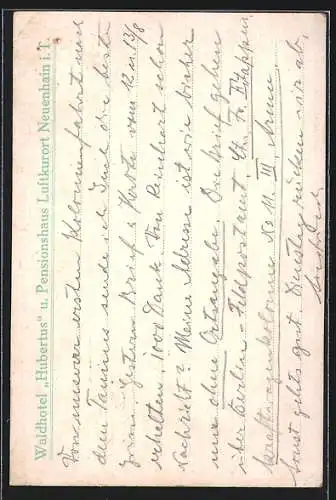 Waldhotel „Hubertus“ u. Pensionshaus Luftkurort Neuenhain i. T.
Von unserer ersten Kolonnenfahrt nach
dem Taunus sende ich Euch die besten
Grüsse. Gestern Brief u. Karte vom 12 u. 13/8
erhalten, 1000 Dank. Von Reinhart schon
Nachricht? Meine Adresse ist wie bisher
nur ohne Ortsangabe. Die Briefe gehen
über Berlin - Feldpostamt.
Kraftwagenkolonne No 11 III Armee
Sonst gehts gut. Dienstag rücken wir ab.